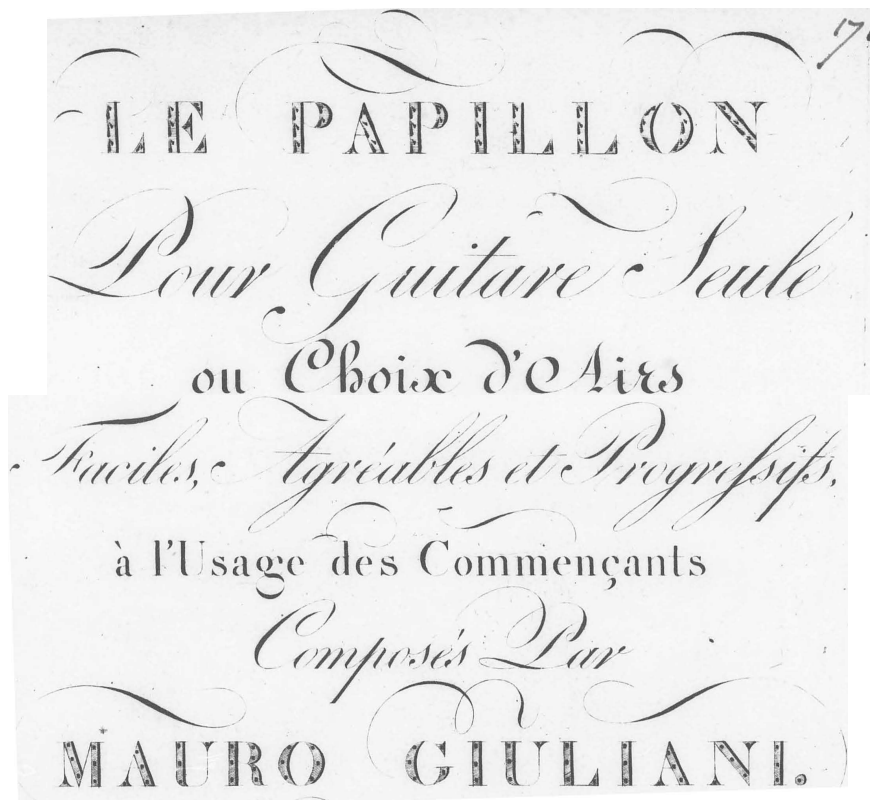 LE PAPILLON
Pour Guitare Seule
ou Choix d'Airs
Faciles, Agréables et Progressifs,
à l'Usage des Commençants
Composés Par
MAURO GIULIANI.